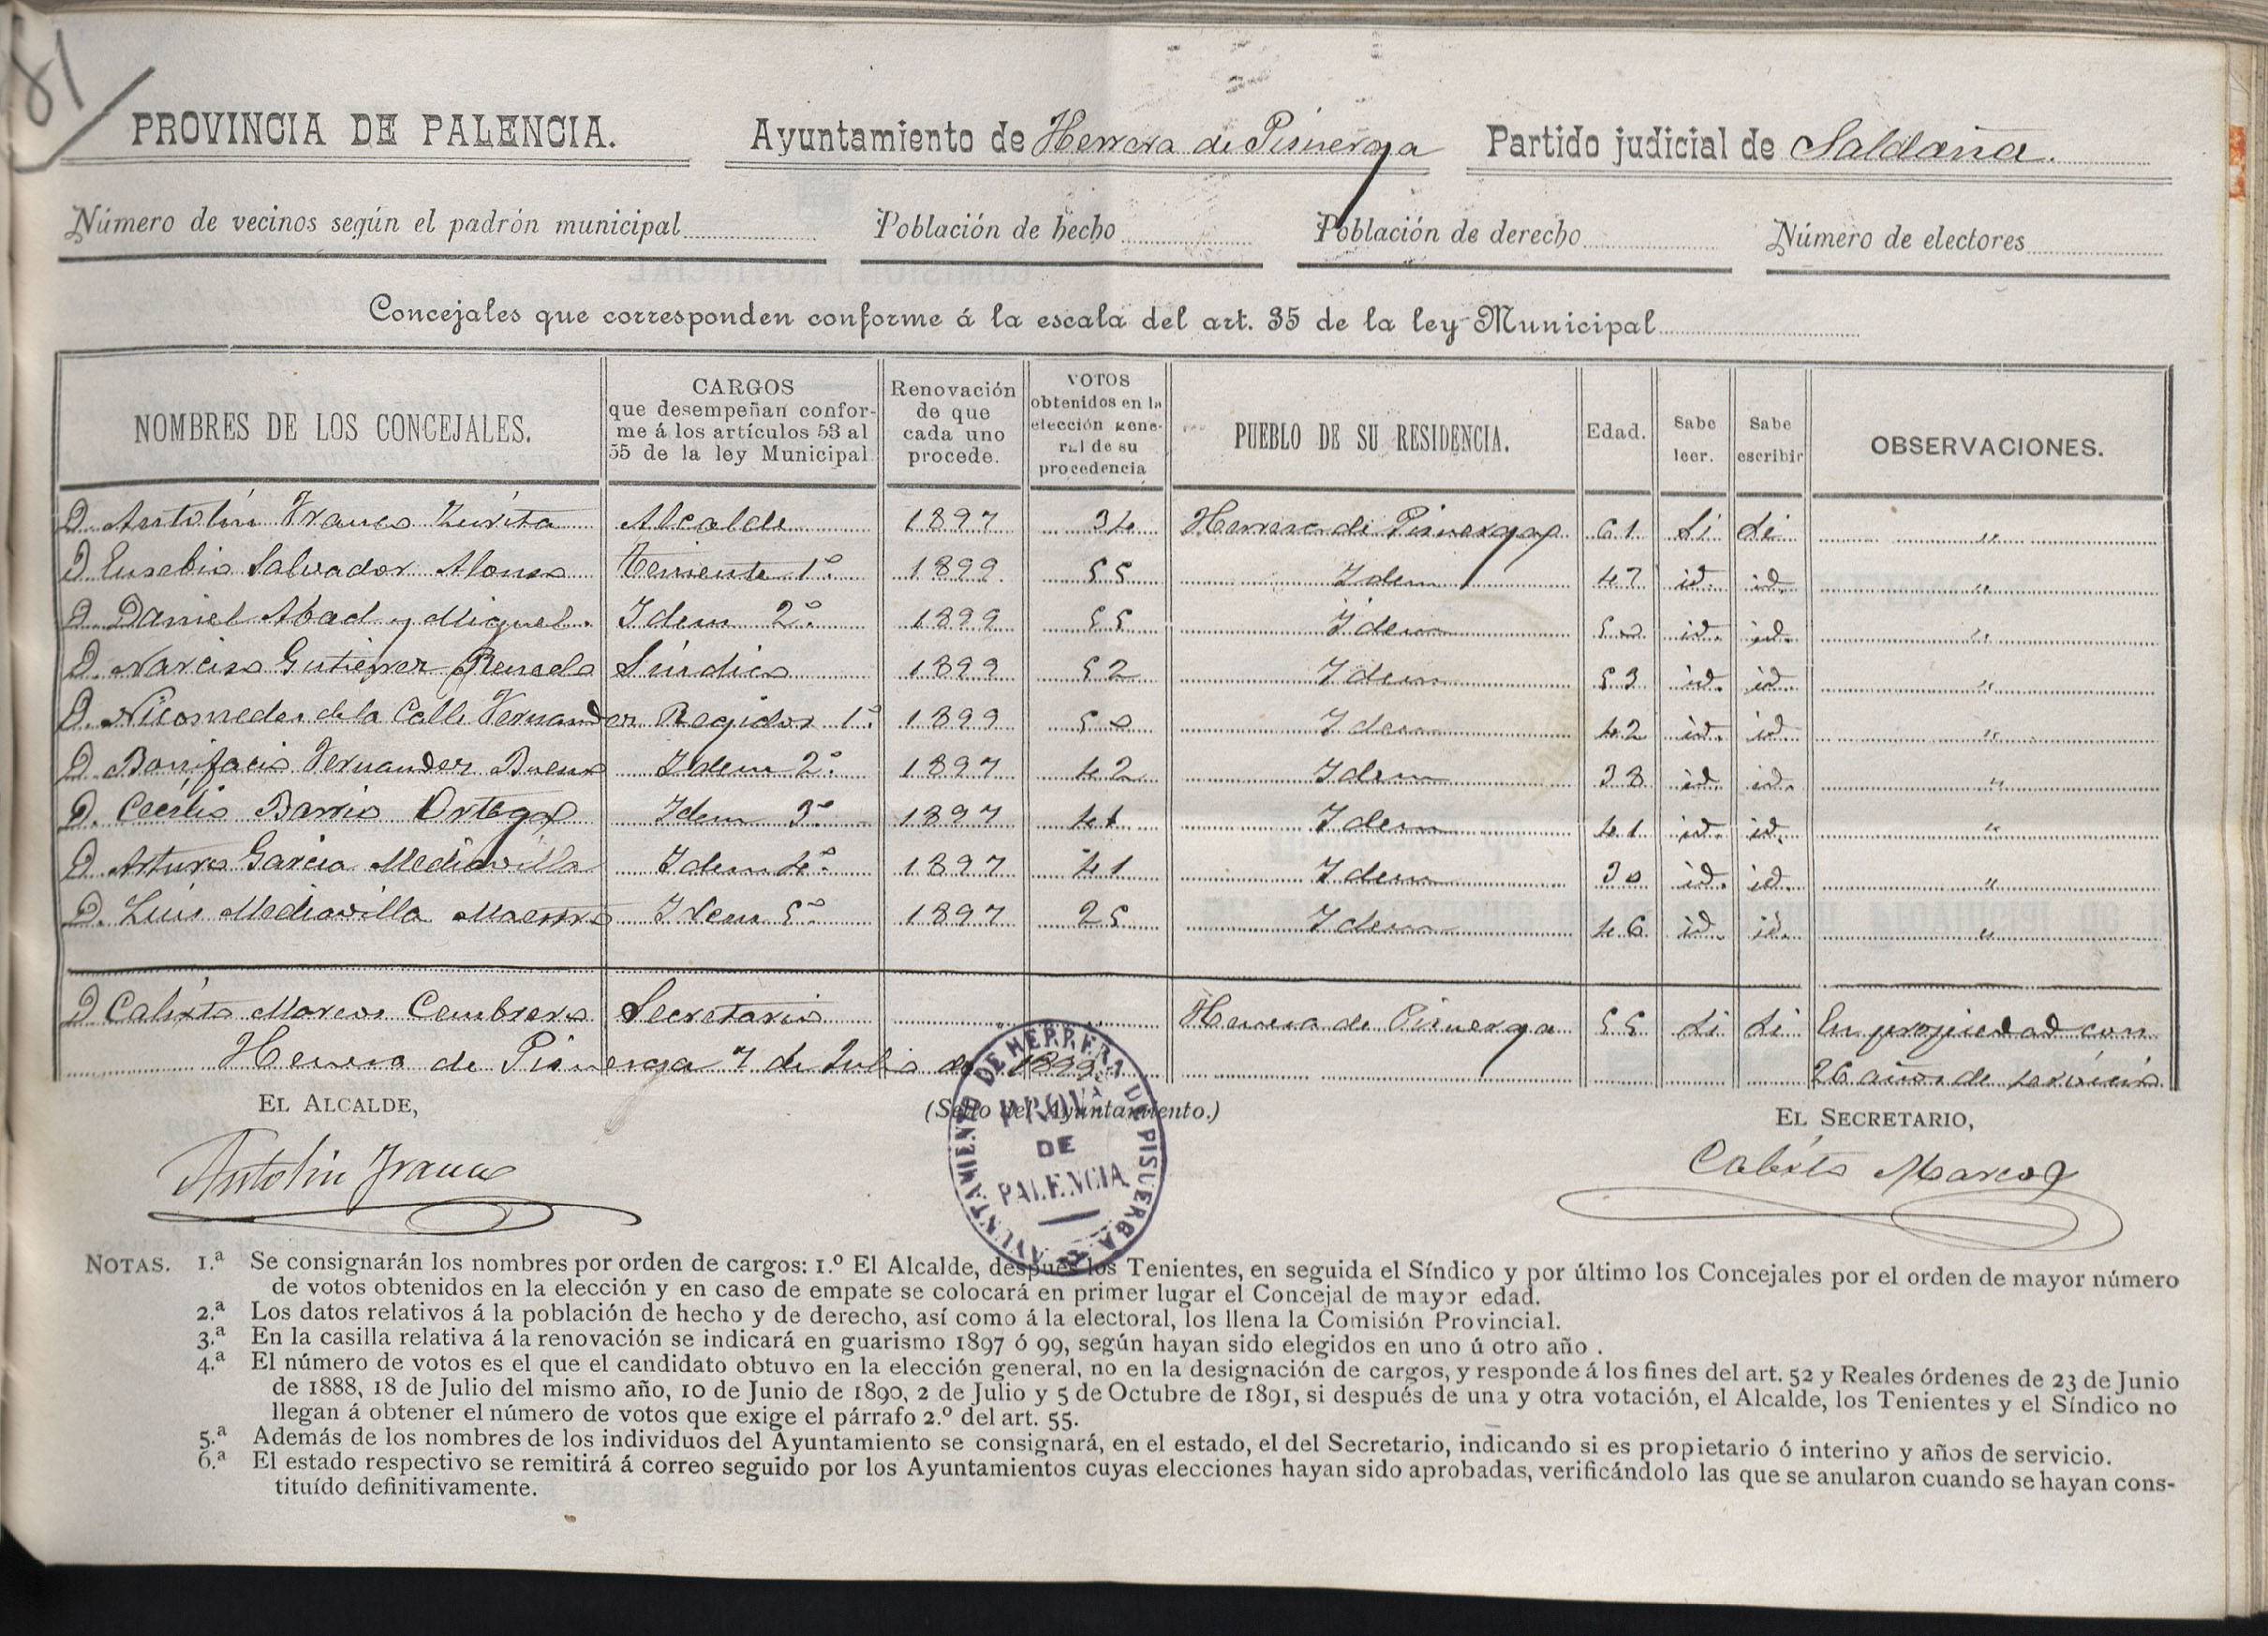 81
PROVINCIA DE PALENCIA. Ayuntamiento de Herrera de Pisuerga Partido judicial de Saldaña.
Número de vecinos según el padrón municipal Población de hecho Población de derecho Número de electores
Concejales que corresponden conforme á la escala del art. 35 de la ley Municipal
NOMBRES DE LOS CONCEJALES. CARGOS que desempeñan confor-me á los artículos 53 al 55 de la ley Municipal Renovación de que cada uno procede. VOTOS obtenidos en la elección gene-ral de su procedencia PUEBLO DE SU RESIDENCIA. Edad. Sabe leer. Sabe escribir OBSERVACIONES.
D. Antolín Franco Zurita Alcalde 1897 34 Herrera de Pisuerga 61 Si Si "
D Eusebio Salvador Alonso Teniente 1º 1899 55 Idem 47 id. id. "
D. Daniel Abad y Miguel. Idem 2º 1899 55 Idem 50 id. id. "
D. Narciso Gutierrez Renedo Síndico 1899 52 Idem 53 id. id. "
D. Nicomedes de la Calle Fernandez Regidor 1º 1899 50 Idem 42 id. id. "
D Bonifacio Fernandez Bueno Idem 2º 1897 42 Idem 38 id. id. "
D. Cecilio Barrio Ortega Idem 3º 1897 41 Idem 41 id. id. "
D Arturo Garcia Mediavilla Idem 4º 1897 41 Idem 30 id. id. "
D. Luis Mediavilla Maestro Idem 5º 1897 25 Idem 46 id. id. "
D Calixto Marcos Cembrero Secretario Herrera de Pisuerga 55 Si Si En propiedad con
Herrera de Pisuerga 7 de Julio de 1899. 26 años de servicio
EL ALCALDE, (Sello del Ayuntamiento.) EL SECRETARIO,
AYUNTAMIENTO DE HERRERA DE PISUERGA
PROVª
DE
PALENCIA
Antolin Franco Calixto Marcos
NOTAS. 1.ª Se consignarán los nombres por orden de cargos: 1.º El Alcalde, después los Tenientes, en seguida el Síndico y por último los Concejales por el orden de mayor número
de votos obtenidos en la elección y en caso de empate se colocará en primer lugar el Concejal de mayor edad.
2.ª Los datos relativos á la población de hecho y de derecho, así como á la electoral, los llena la Comisión Provincial.
3.ª En la casilla relativa á la renovación se indicará en guarismo 1897 ó 99, según hayan sido elegidos en uno ú otro año .
4.ª El número de votos es el que el candidato obtuvo en la elección general, no en la designación de cargos, y responde á los fines del art. 52 y Reales órdenes de 23 de Junio
de 1888, 18 de Julio del mismo año, 10 de Junio de 1890, 2 de Julio y 5 de Octubre de 1891, si después de una y otra votación, el Alcalde, los Tenientes y el Síndico no
llegan á obtener el número de votos que exige el párrafo 2.º del art. 55.
5.ª Además de los nombres de los individuos del Ayuntamiento se consignará, en el estado, el del Secretario, indicando si es propietario ó interino y años de servicio.
6.ª El estado respectivo se remitirá á correo seguido por los Ayuntamientos cuyas elecciones hayan sido aprobadas, verificándolo las que se anularon cuando se hayan cons-
tituído definitivamente.